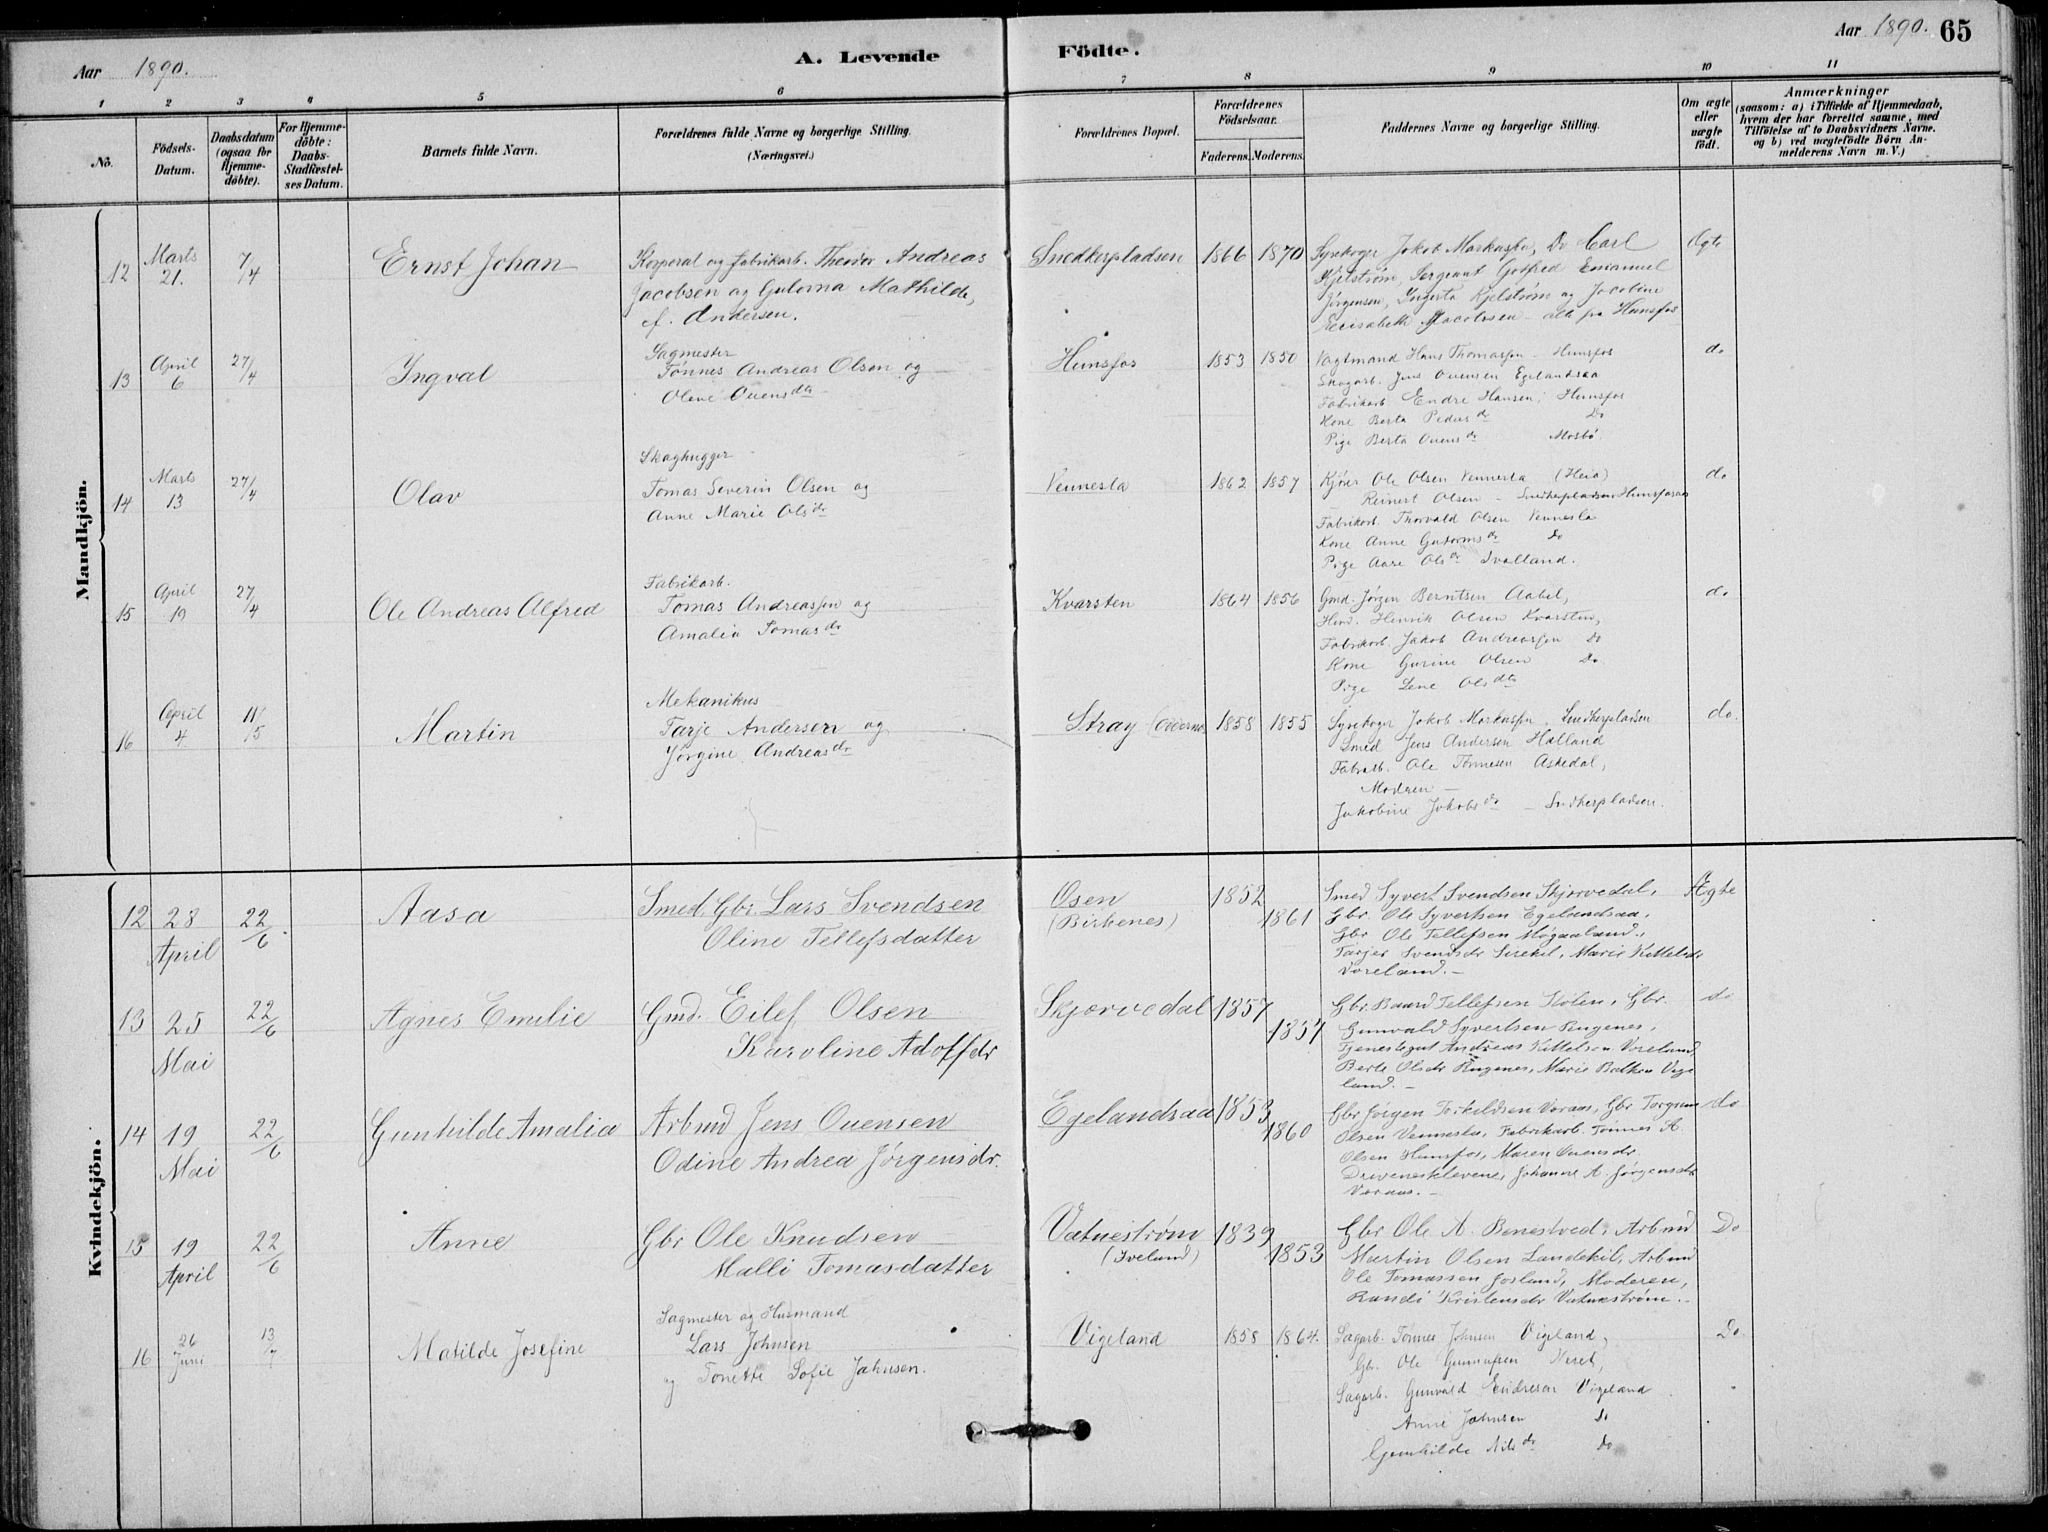 Aar 1890.
A. Levende
Födte.
Aar 1890. 65
1 2 3 4 5 6 7 8 9 10 11
No.
Födsels-Datum.
Daabsdatum (ogsaa for Hjemme-döbte).
For Hjemme-döbte: Daabs-Stadfæstel-ses Datum.
Barnets fulde Navn.
Forældrenes fulde Navne og borgerlige Stilling.
(Næringsvei.)
Forældrenes Bopæl.
Forældrenes Födselsaar.
Faderens. Moderens.
Faddernes Navne og borgerlige Stilling.
Om ægte eller uægte födt.
Anmærkninger
(saasom: a) i Tilfælde af Hjemmedaab, hvem der har forrettet samme, med Tilföielse af to Daabsvidners Navne. og b) ved uægtefödte Börn An-melderens Navn m. V.)
Mandkjön.
12 Marts 21. 7/4 Ernst Johan
Korporal og fabrikarb. Theodor Andreas
Jacobsen og Gulovna Mathilde,
f. Andersen.
Snedkerpladsen 1866 1870
Syrekoger Jakob Markussen, Do Carl
Kjelström, Sergeant Gotfred Emanuel
Jörgensen, Ingerta Kjelström og Jacobine
Elisabeth Jacobsen – alle fra Hunsfos
Ægte
13 April 6 27/4 Ingval
Sagmester
Tönnes Andreas Olsen og
Olene Ouensdtr
Hunsfos 1853 1850
Vagtmand Hans Thomassen – Hunsfos
Skogarb. Jens Ouensen Egelandsaa
Fabrikarb. Endre Hansen, Hunsfos
Kone Berta Pedersdr Do
Pige Berta Ouensdr Mosbö
do
14 Marts 13 27/4 Olav
Skoghugger
Tomas Severin Olsen og
Anne Marie Olsdr
Vennesla 1862 1857
Kjörer Ole Olsen Vennesla (Heia)
Reinert Olsen – Snedkerpladsen Hunsfos
Fabrikarb. Thorvald Olsen Vennesla
Kone Anne Gutormsdr Do
Pige Aase Olsdr Ivalland.
do
15 April 19 27/4 Ole Andreas Alfred
Fabrikarb.
Tomas Andreassen og
Amalia Tomasdr
Kvarsten 1864 1856
Gmd. Jörgen Berntsen Aabel,
Henrik Olsen Kvarsten,
Fabrikarb. Jakob Andreassen Do
Kone Gurine Olsen Do
Pige Lene Olsdtr
do
16 April 4 11/5 Martin
Mekanikus
Tarje Andersen og
Jörgine Andreasdr
Stray 1858 1855
Syrekoger Jakob Markussen, Snedkerpladsen
Smed Jens Andersen Hälland
Fabrikarb. Ole Tönnesen Askedal,
Modren –
Jakobine Jakobsdr – Snedkerpladsen.
do.
Kvindekjön.
12 28 April 22/6. Aasa
Smed, Gbr. Lars Svendsen
Oline Tellefsdatter
Osen
(Birkenes)
1852 1861
Smed Syvert Svendsen Skjorvedal,
Gbr. Ole Syvertsen Egelandsaa,
Gbr Ole Tellefsen Mögaaland,
Tarjer Svendsdr Sirekil, Marie Kittelsdr
Voreland. –
Ægte
13 25 Mai 22/6 Agnes Emilie
Gmd. Eilef Olsen
Karoline Adolfsdr
Skjorvedal 1857 1857
Gbr. Baard Tellefsen Stölen, Gbr.
Gunvald Syvertsen Rugenes,
Tjenestegut Andreas Kittelsen Voreland
Berte Olsdr Rugenes, Marie Balken Vige
land. –
do
14 19 Mai 22/6 Gunhilde Amalia
Arbmd Jens Ouensen
Odine Andrea Jörgensdr.
Egelandsaa 1853 1860
Gbr Jörgen Torkildsen Voraas, Gbr Torgrim
Olsen Vennesla, Fabrikarb. Tönnes A.
Olsen Hunsfos, Maren Ouensdr
Drivenesklevene, Johanne A. Jörgensdr
Voraas. –
do
15 19 April 22/6 Anne
Gbr Ole Knudsen
Malli Tomasdatter
Vatneström
(Iveland)
1839 1853
Gbr Ole A. Benestved, Arbmd
Martin Olsen Landekil, Arbmd
Ole Tomassen Josland, Moderen,
Randi Kristensdr Vatneström. –
Do
16 26 Juni 13/7 Matilde Josefine
Sagmester og Husmand
Lars Johnsen
og Tonette Sofie Jahnsen.
Vigeland 1858 1864.
Sagarb. Tönnes Johnsen Vigeland,
Gbr. Ole Gunnufsen Neset,
Sagarb. Gunvald Endresen Vigeland
Anne Jahnsen Do
Gunhilde Nilsdr Do
Do